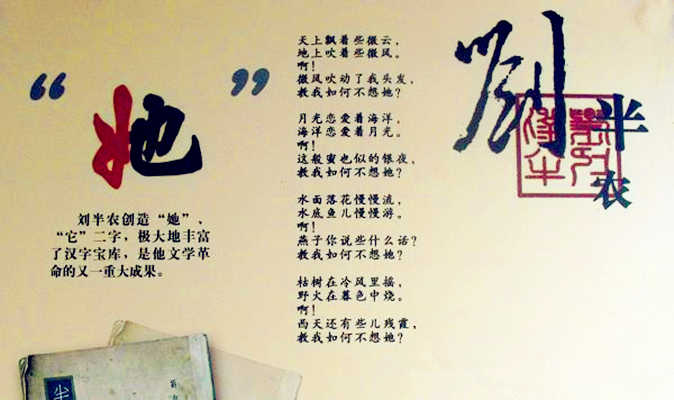 “她”
刘半农创造“她”、
“它”二字，极大地丰富
了汉字宝库，是他文学革
命的又一重大成果。
天上飘着些微云，
地上吹着些微风。
啊！
微风吹动了我头发，
教我如何不想她？
月光恋爱着海洋，
海洋恋爱着月光。
啊！
这般蜜也似的银夜，
教我如何不想她？
水面落花慢慢流，
水底鱼儿慢慢游。
啊！
燕子你说些什么话？
教我如何不想她？
枯树在冷风里摇，
野火在暮色中烧。
啊！
西天还有些儿残霞，
教我如何不想她？
劉半农
半